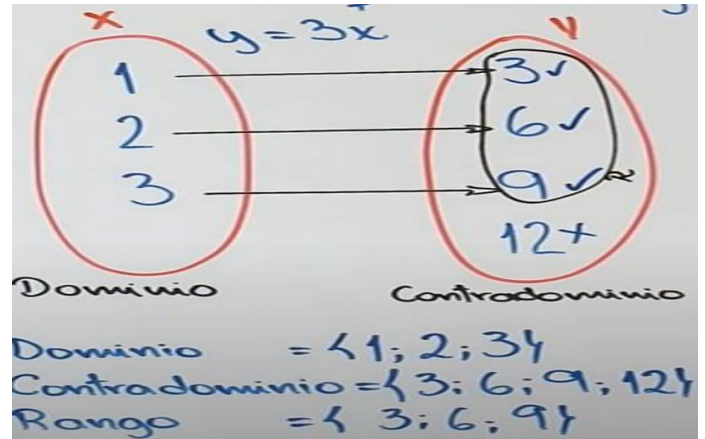 x y = 3x y
1 3✓
2 6✓
3 9✓
12x
Dominio Contradominio
Dominio = {1; 2; 3}
Contradominio = {3; 6; 9; 12}
Rango = {3; 6; 9}